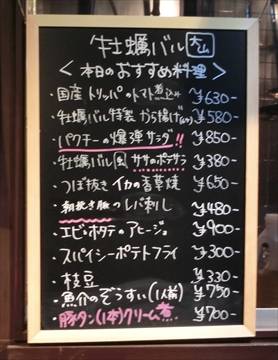 牡蠣バル 大山
<本日のおすすめ料理>
・国産 トリッパのトマト煮込み ¥630-
・牡蠣バル特製 から揚げ ¥580-
・パクチーの爆弾サラダ!! ¥850-
・牡蠣バル風 ササのポテサラ ¥380-
・つぼ抜きイカの香草焼 ¥650-
・朝挽き豚のレバ刺し ¥480-
・エビ・ホタテのアヒージョ ¥900-
・スパイシーポテトフライ ¥300-
・枝豆 ¥330-
・魚介のぞうすい(1人前) ¥750-
・豚タン(1本)クリーム煮 ¥700-